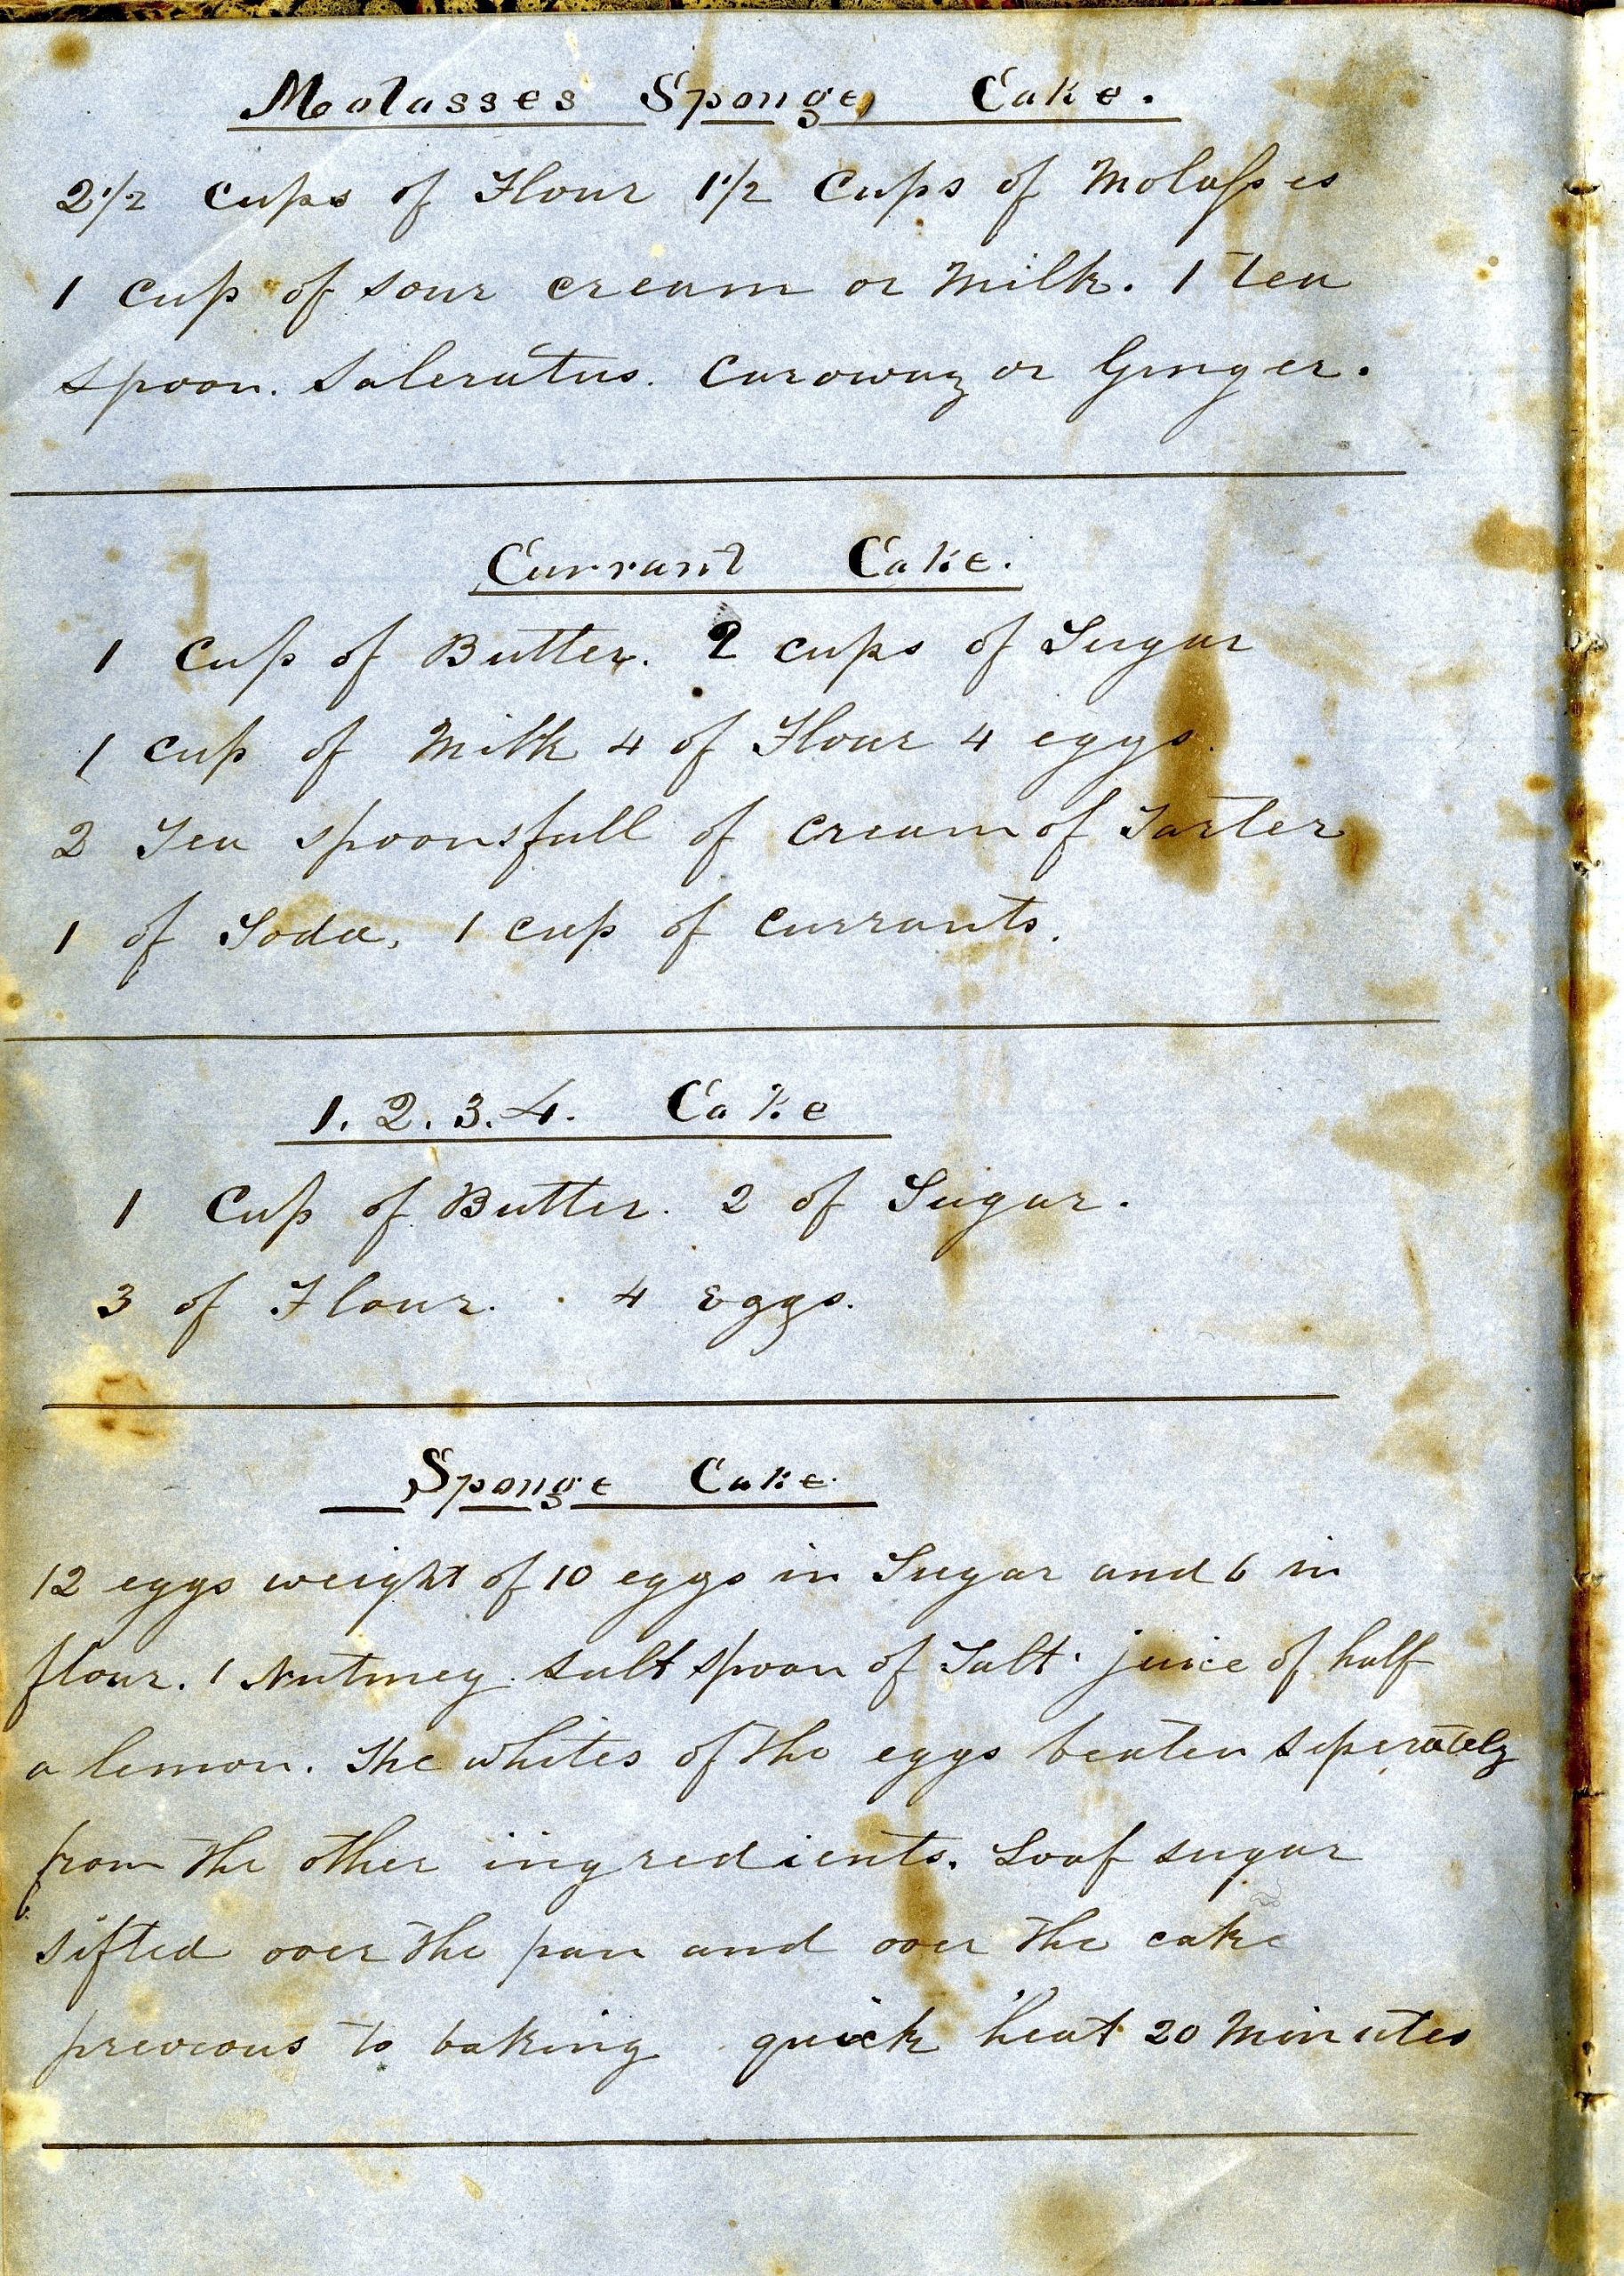 Molasses Sponge Cake.
2 1/2 cups of Flour 1 1/2 Cups of Molasses
1 Cup of sour cream or Milk. 1 tea
spoon. Saleratus. Caroway or Ginger.
Currant Cake.
1 Cup of Butter. 2 cups of Sugar
1 cup of Milk 4 of Flour 4 eggs.
2 Tea spoonsfull of cream of Tarter
1 of Soda, 1 cup of currants.
1. 2. 3. 4. Cake
1 Cup of Butter. 2 of Sugar.
3 of Flour. 4 Eggs.
Sponge Cake.
12 eggs weight of 10 eggs in Sugar and 6 in
flour. 1 Nutmeg. salt spoon of Salt. juice of half
a lemon. The whites of the eggs beaten seperately
from the other ingredients. Loaf sugar
sifted over the pan and over the cake
prevous to baking quick heat 20 Minutes